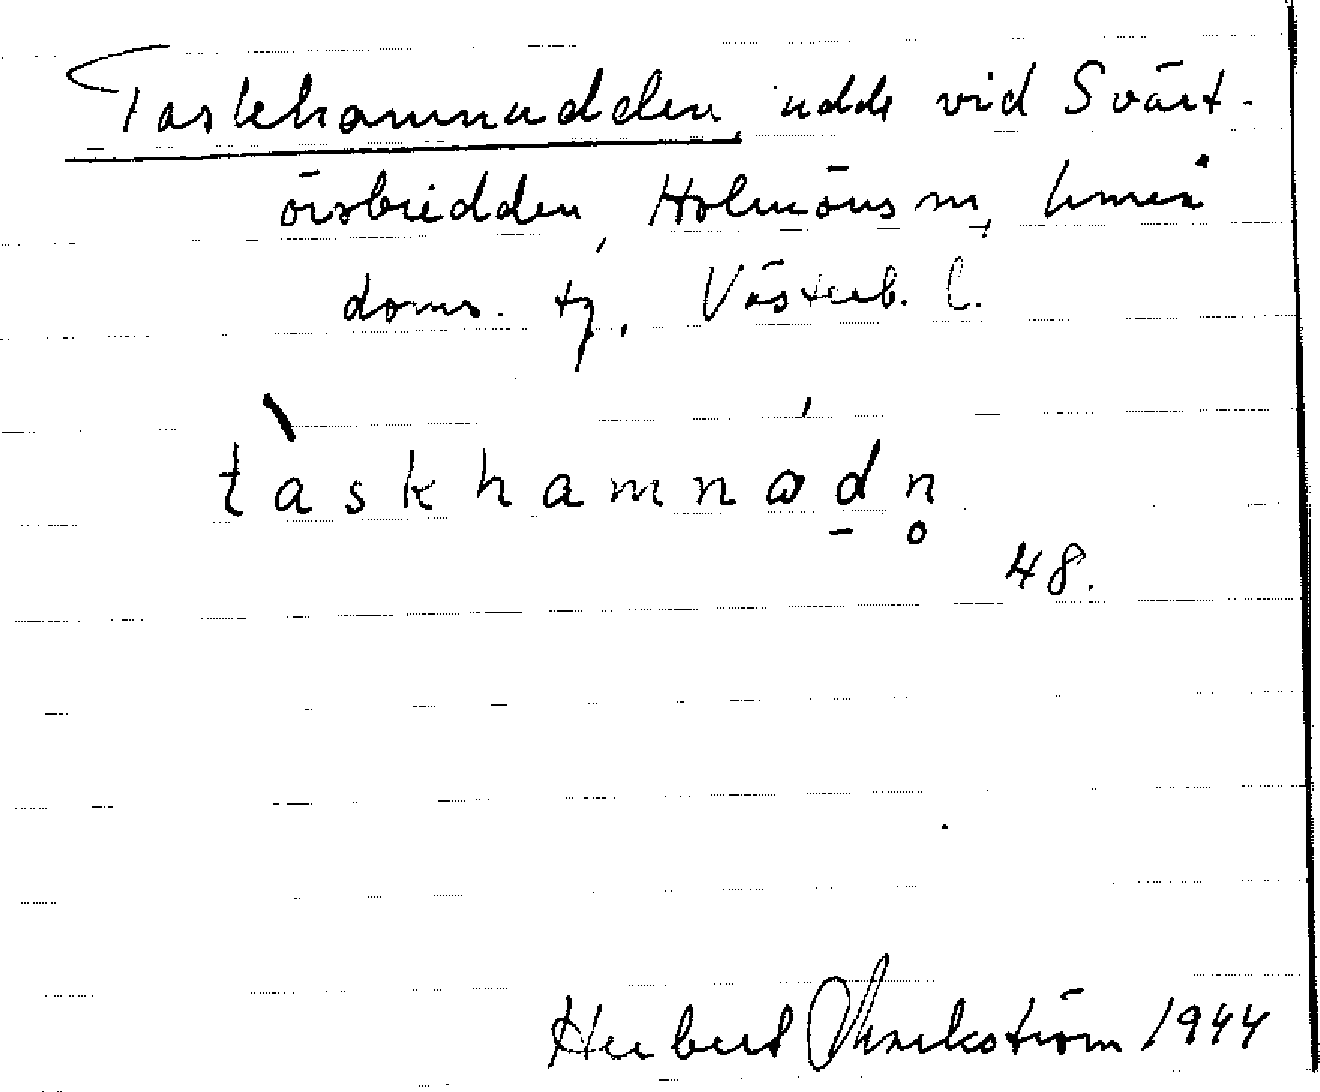 Taskhamnudden, udde vid Svart-
örsbredden, Holmöns sn, Umeå
doms. tg, Västerb. l.
tàskhamnødn
48.
Herbert Markström 1944